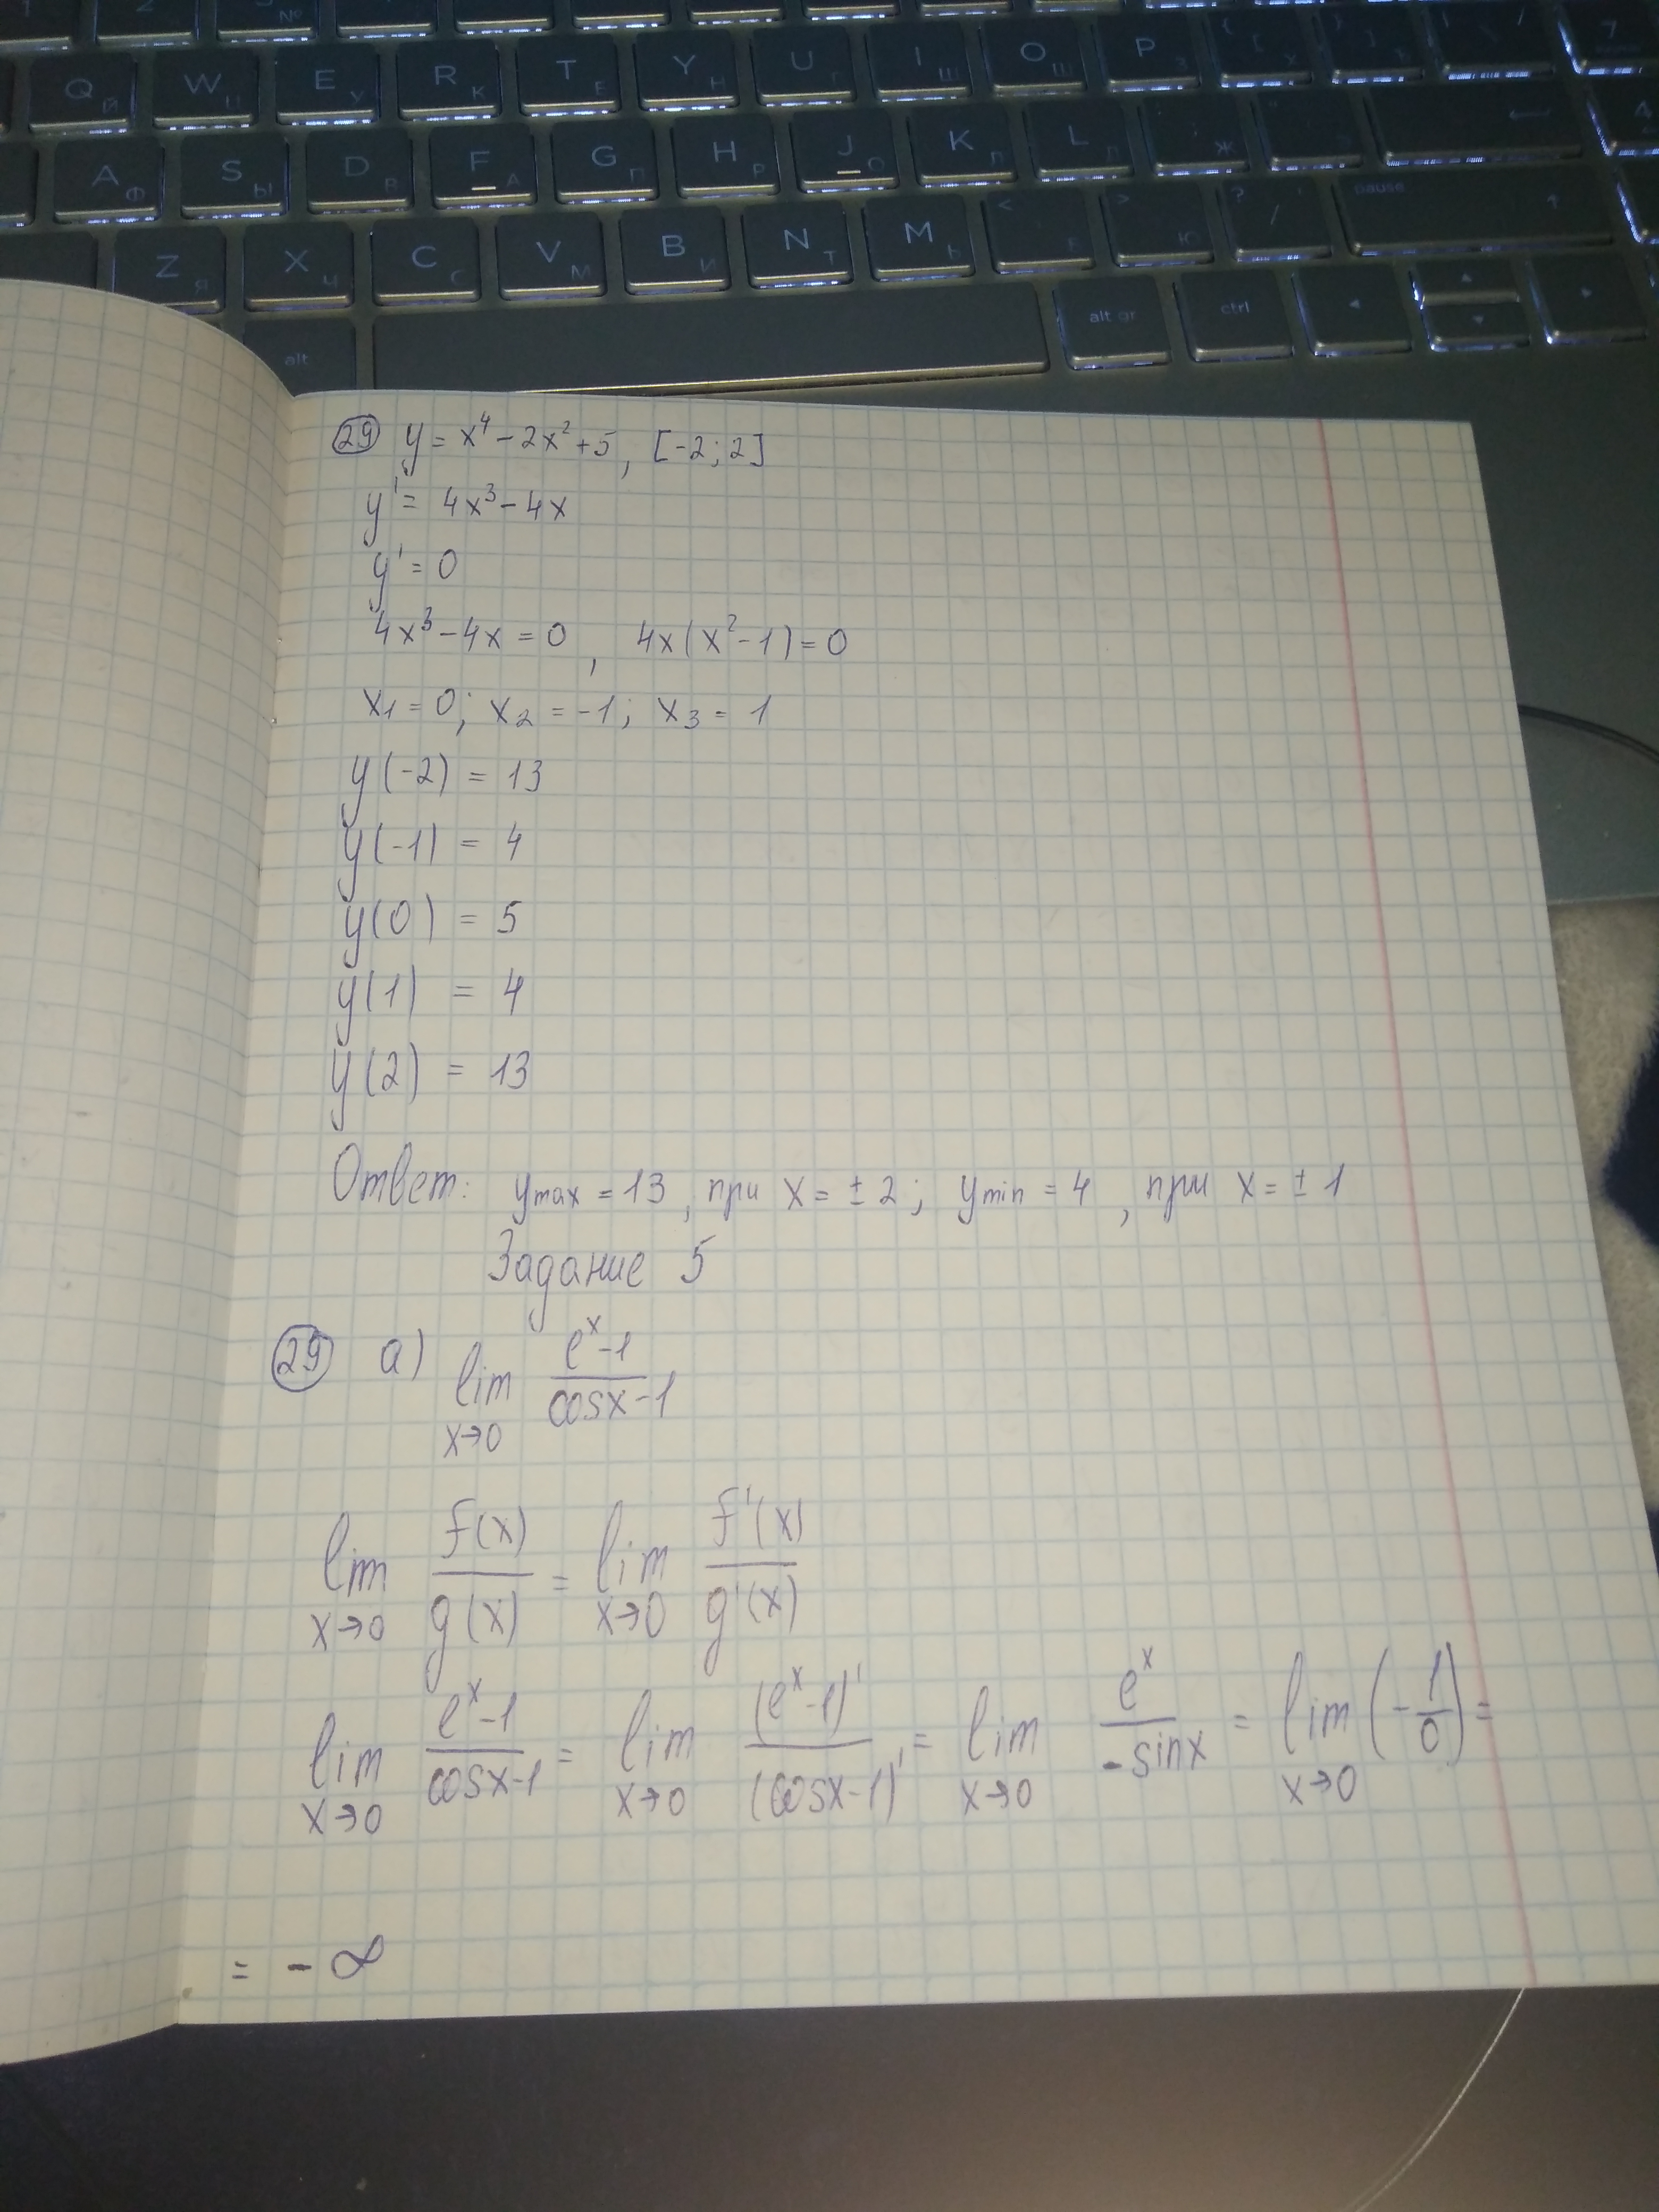 Q Й W Ц E У R К T Е Y Н U Г I Ш O Щ P З { [ Х } ] Ъ | \ / 7
A Ф S Ы D В F А G П H Р J О K Л L Д ; Ж " 4
Z Я X Ч C С V М B И N Т M Ь < Б > Ю ? / pause
alt alt gr ctrl
29 y = x⁴ - 2x² + 5, [-2; 2]
y' = 4x³ - 4x
y' = 0
4x³ - 4x = 0, 4x(x² - 1) = 0
x₁ = 0; x₂ = -1; x₃ = 1
y(-2) = 13
y(-1) = 4
y(0) = 5
y(1) = 4
y(2) = 13
Ответ: ymax = 13, при x = ± 2; ymin = 4, при x = ± 1
Задание 5
29 а) lim x→0 (e^x - 1)/(cosx - 1)
lim x→0 f(x)/g(x) = lim x→0 f'(x)/g'(x)
lim x→0 (e^x - 1)/(cosx - 1) = lim x→0 (e^x - 1)'/(cosx - 1)' = lim x→0 e^x/(-sinx) = lim x→0 (-1/0) =
= - ∞